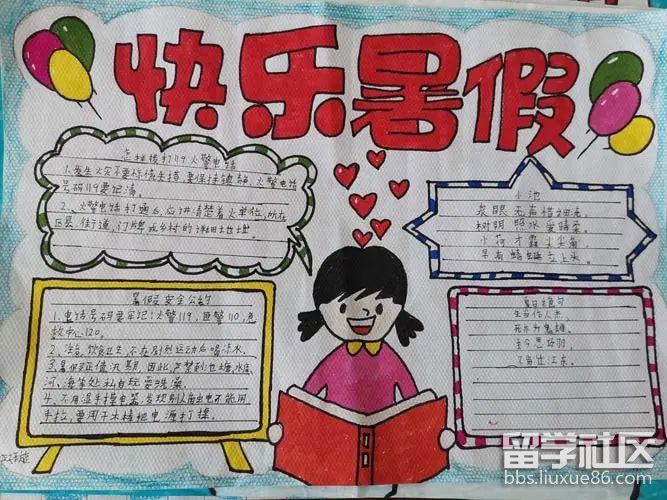 快乐暑假
怎样拨打119火警电话
1、发生火灾不要惊慌失措,要保持镇静,火警电话
号码119要记清。
2、火警电话打通后,应讲清楚着火单位,所在
区县、街道、门牌或乡村的详细地址。
小池
泉眼无声惜细流,
树阴照水爱晴柔。
小荷才露尖尖角,
早有蜻蜓立上头。
暑假安全公约
1、电话号码要牢记:火警119,匪警110,急
救中心120。
2、注意饮食卫生,不在剧烈运动后喝冷水。
3、暑假正值汛期,因此,严禁到池塘、水库、
河、海等处私自玩耍洗澡。
4、不用湿手摸电器,发现别人触电不能用
手拉,要用干木棒把电源打掉。
夏日绝句
生当作人杰,
死亦为鬼雄。
至今思项羽,
不肯过江东。
留学社区
bbs.liuxue86.com